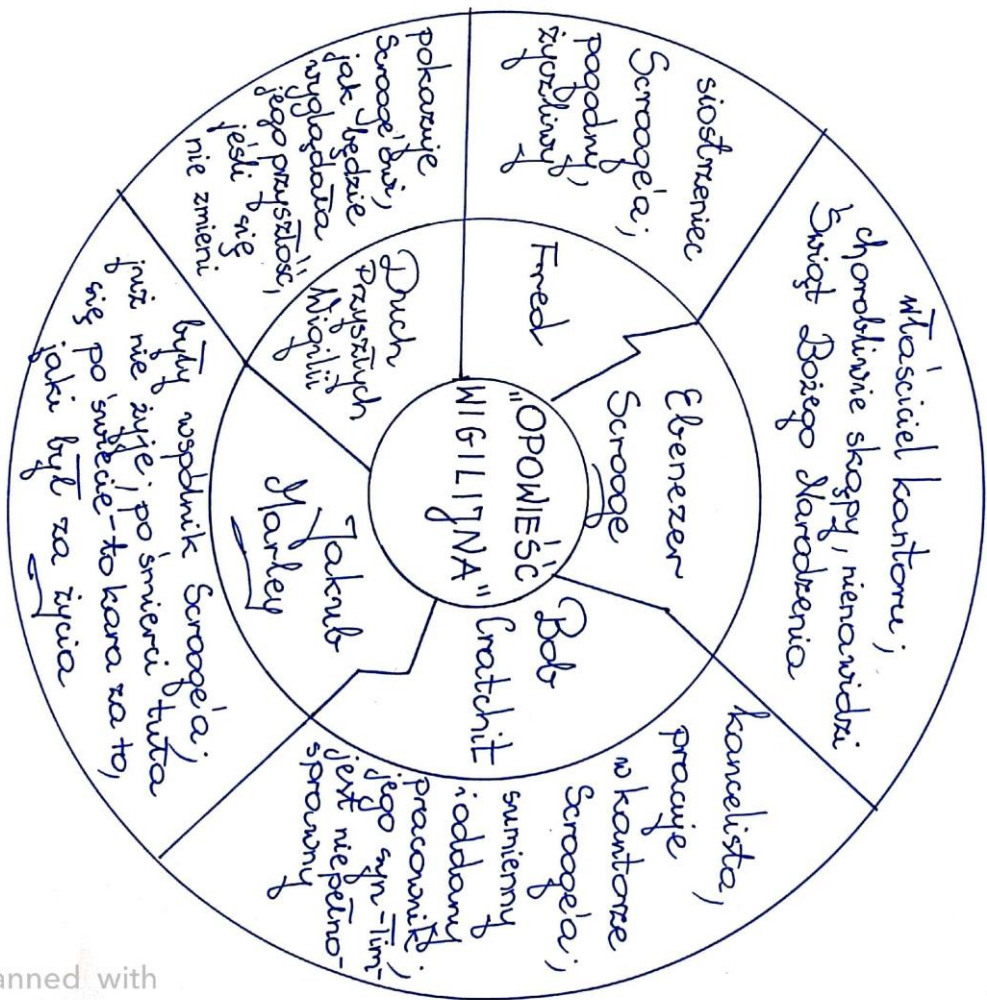 "OPOWIEŚĆ
WIGILIJNA"
Ebenezer
Scrooge
właściciel kantoru;
chorobliwie skąpy, nienawidzi
Świąt Bożego Narodzenia
Bob
Cratchit
kancelista,
pracuje
w kantorze
Scrooge'a;
sumienny
i oddany
pracownik;
jego syn - Tim -
jest niepełno-
sprawny
Jakub
Marley
były wspólnik Scrooge'a;
już nie żyje; po śmierci tuła
się po świecie - to kara za to,
jaki był za życia
Duch
Przyszłych
Wigilii
pokazuje
Scrooge'owi,
jak będzie
wyglądała
jego przyszłość,
jeśli się
nie zmieni
Fred
siostrzeniec
Scrooge'a;
pogodny,
życzliwy
anned with